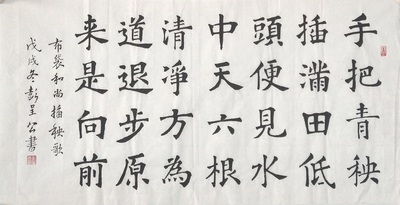 手把青秧
插滿田低
頭便見水
中天六根
清淨方為
道退步原
来是向前
布袋和尚插秧歌
戊戌冬彭呈公書